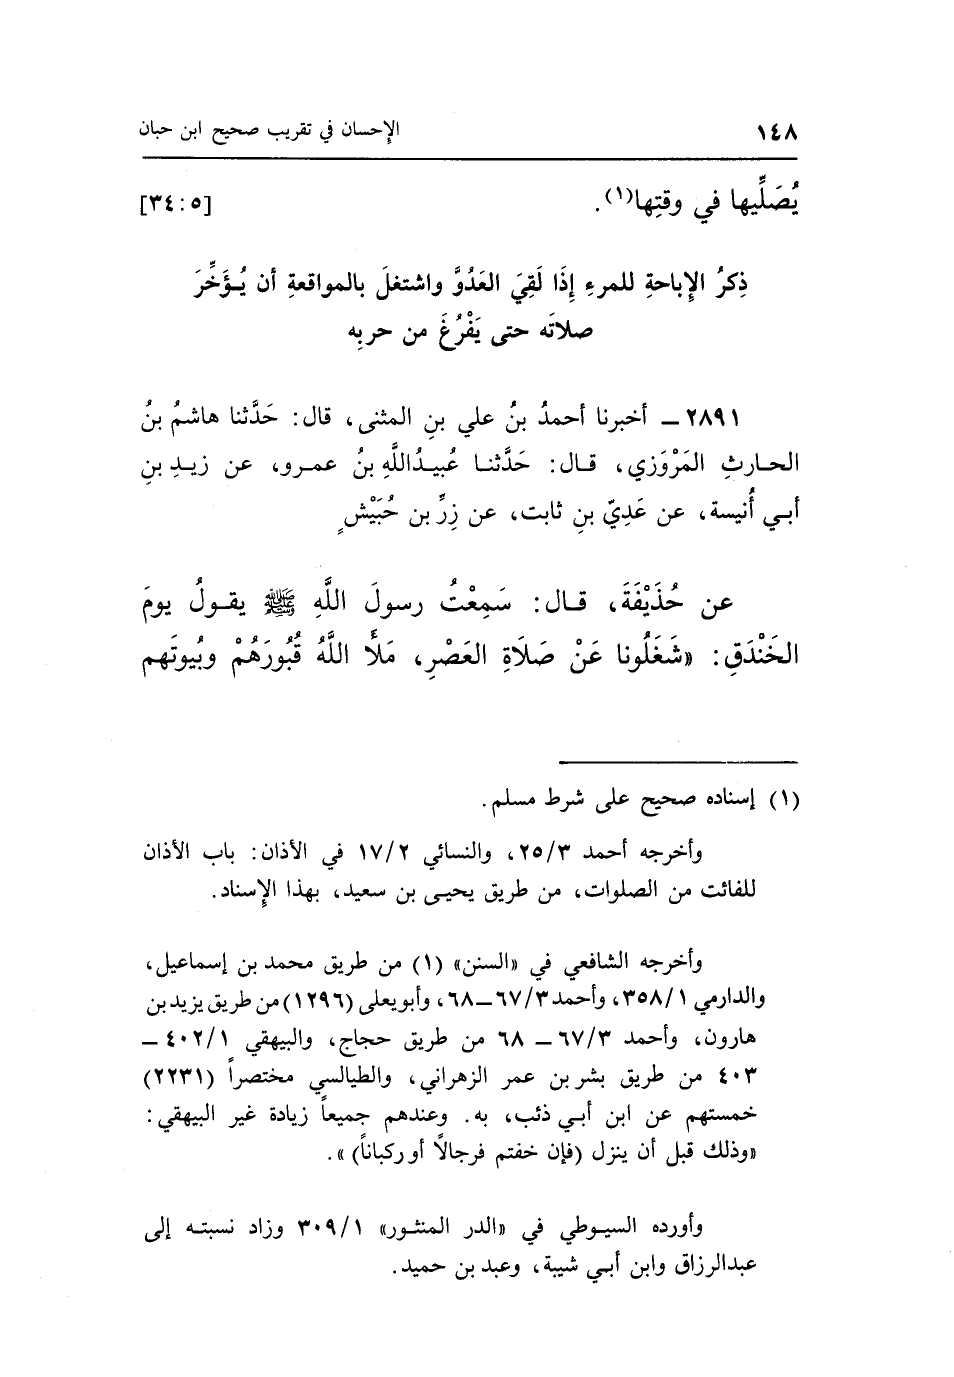 ١٤٨ الإحسان في تقريب صحيح ابن حبان
يُصَلِّيها في وقتِها(١). [٣٤:٥]
ذِكرُ الإِباحةِ للمرءِ إِذَا لَقِيَ العَدُوَّ واشتغلَ بالمواقعةِ أن يُـؤَخِّرَ
صلاتَه حتى يَفْرُغَ من حربِه
٢٨٩١ – أخبرنا أحمدُ بنُ علي بنِ المثنى، قال: حَدَّثنا هاشمُ بنُ
الحـارثِ المَرْوَزي، قـال: حَدَّثنـا عُبيـدُاللَّهِ بنُ عمـرو، عن زيـدِ بنِ
أبـي أُنيسة، عن عَدِيّ بنِ ثابت، عن زِرِّ بن حُبَيْشٍ
عن حُذَيْفَةَ، قـال: سَمِعْتُ رسولَ اللَّهِ ﷺ يقـولُ يومَ
الخَنْدَقِ: «شَغَلُونا عَنْ صَلَاةِ العَصْرِ، مَلَأَ اللَّهُ قُبُورَهُمْ وبُيوتَهم
(١) إسناده صحيح على شرط مسلم.
وأخرجه أحمد ٢٥/٣، والنسائي ١٧/٢ في الأذان: باب الأذان
للفائت من الصلوات، من طريق يحيـى بن سعيد، بهذا الإِسناد.
وأخرجه الشافعي في «السنن» (١) من طريق محمد بن إسماعيل،
والدارمي ٣٥٨/١، وأحمد ٦٧/٣–٦٨، وأبويعلى (١٢٩٦) من طريق يزيد بن
هارون، وأحمد ٦٧/٣ – ٦٨ من طريق حجاج، والبيهقي ٤٠٢/١ –
٤٠٣ من طريق بشر بن عمر الزهراني، والطيالسي مختصراً (٢٢٣١)
خمستهم عن ابن أبـي ذئب، به. وعندهم جميعاً زيادة غير البيهقي:
«وذلك قبل أن ينزل (فإن خفتم فرجالاً أو ركباناً)».
وأورده السيـوطي في «الدر المنثـور» ٣٠٩/١ وزاد نسبتـه إلى
عبدالرزاق وابن أبـي شيبة، وعبد بن حميد.